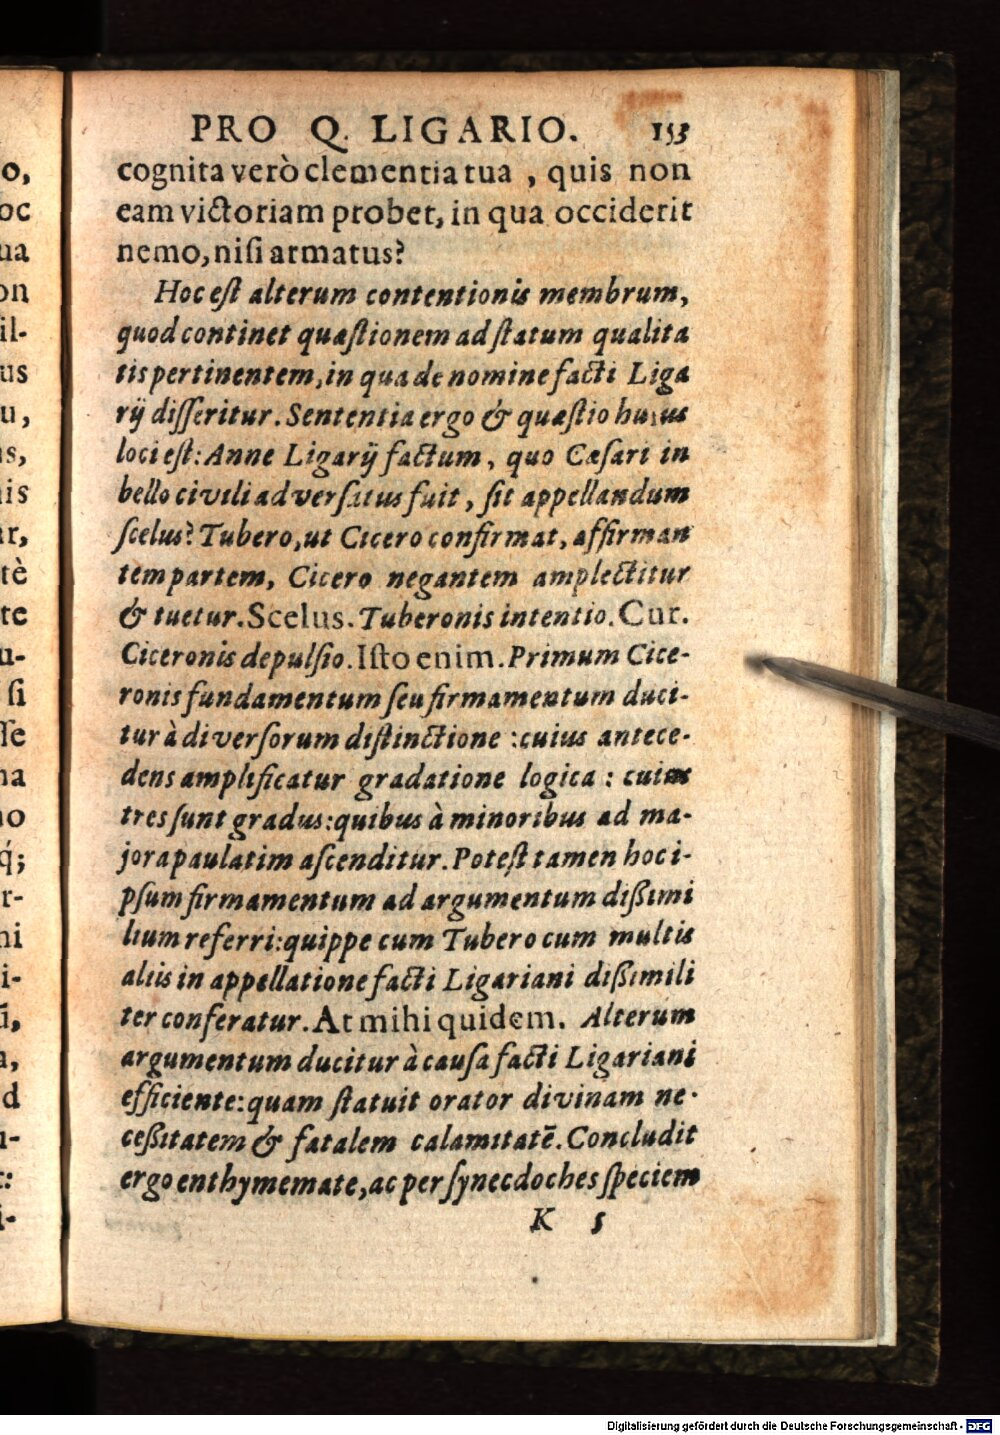 o,
oc
ua
on
il-
us
u,
s,
is
r,
tè
te
u-
si
ſſe
na
no
q́;
r-
ni
i-
ū,
a,
d
u-
:
i-
PRO Q. LIGARIO. 153
cognita verò clementia tua, quis non
eam victoriam probet, in qua occiderit
nemo, niſi armatus?
Hoc eſt alterum contentionis membrum,
quod continet quæſtionem ad ſtatum qualita
tis pertinentem, in qua de nomine facti Liga
rij diſſeritur. Sententia ergo & quæſtio huius
loci eſt: Anne Ligarij factum, quo Cæſari in
bello civili adverſatus fuit, ſit appellandum
ſcelus? Tubero, ut Cicero confirmat, affirman
tem partem, Cicero negantem amplectitur
& tuetur. Scelus. Tuberonis intentio. Cur.
Ciceronis depulſio. Iſto enim. Primum Cice-
ronis fundamentum ſeu firmamentum duci-
tur à diverſorum diſtinctione: cuius antece-
dens amplificatur gradatione logica: cuius
tres ſunt gradus: quibus à minoribus ad ma-
jora paulatim aſcenditur. Poteſt tamen hoc i-
pſum firmamentum ad argumentum dißimi
lium referri: quippe cum Tubero cum multis
aliis in appellatione facti Ligariani dißimili
ter conferatur. At mihi quidem. Alterum
argumentum ducitur à cauſa facti Ligariani
efficiente: quam ſtatuit orator divinam ne-
ceßitatem & fatalem calamitatē. Concludit
ergo enthymemate, ac per ſynecdoches ſpeciem
K 5
Digitalisierung gefördert durch die Deutsche Forschungsgemeinschaft - DFG